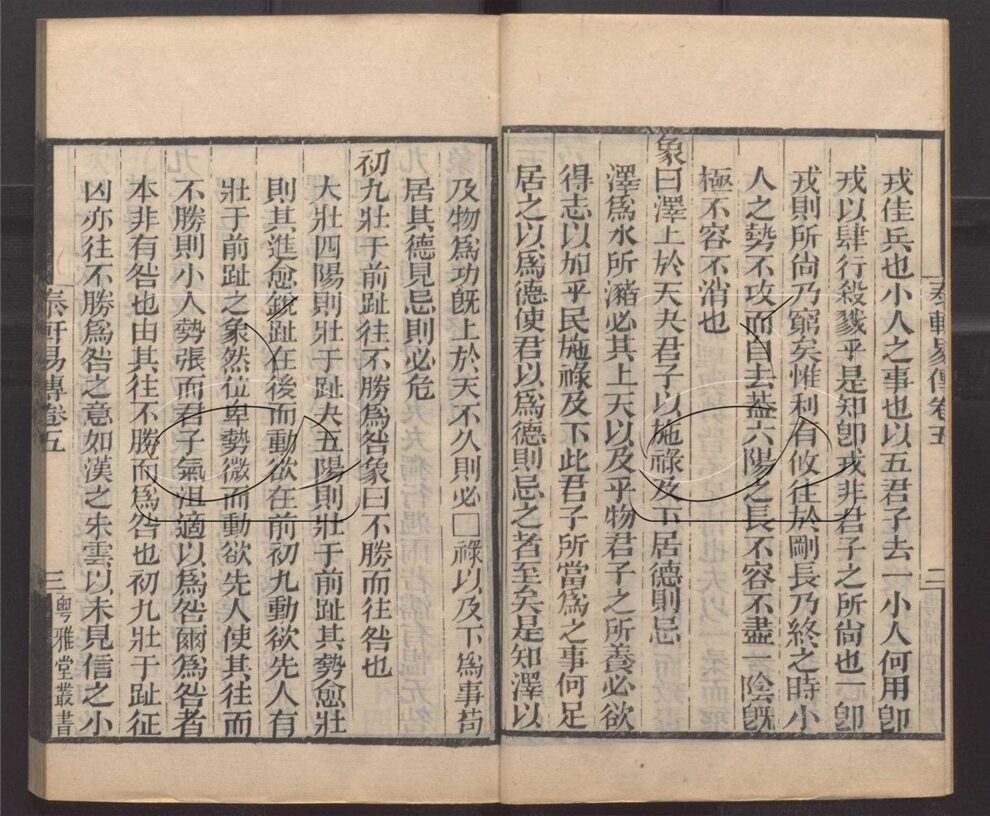 戎佳兵也小人之事也以五君子去一小人何用卽
戎以肆行殺戮乎是知卽戎非君子之所尚也一卽
戎則所尚乃窮矣惟利有攸往於剛長乃終之時小
人之勢不攻而自去葢六陽之長不容不盡一陰旣
極不容不消也
象曰澤上於天夬君子以施祿及下居德則忌
澤爲水所瀦必其上天以及乎物君子之所養必欲
得志以加乎民施祿及下此君子所當爲之事何足
居之以爲德使君以爲德則忌之者至矣是知澤以
及物爲功旣上於天不久則必□祿以及下爲事苟
居其德見忌則必危
初九壯于前趾往不勝爲咎象曰不勝而往咎也
大壯四陽則壯于趾夬五陽則壯于前趾其勢愈壯
則其進愈銳趾在後而動欲在前初九動欲先人有
壯于前趾之象然位卑勢微而動欲先人使其往而
不勝則小人勢張而君子氣沮適以爲咎爾爲咎者
本非有咎也由其往不勝而爲咎也初九壯于趾征
凶亦往不勝爲咎之意如漢之朱雲以未見信之小
易傳卷五
三
粵雅堂叢書